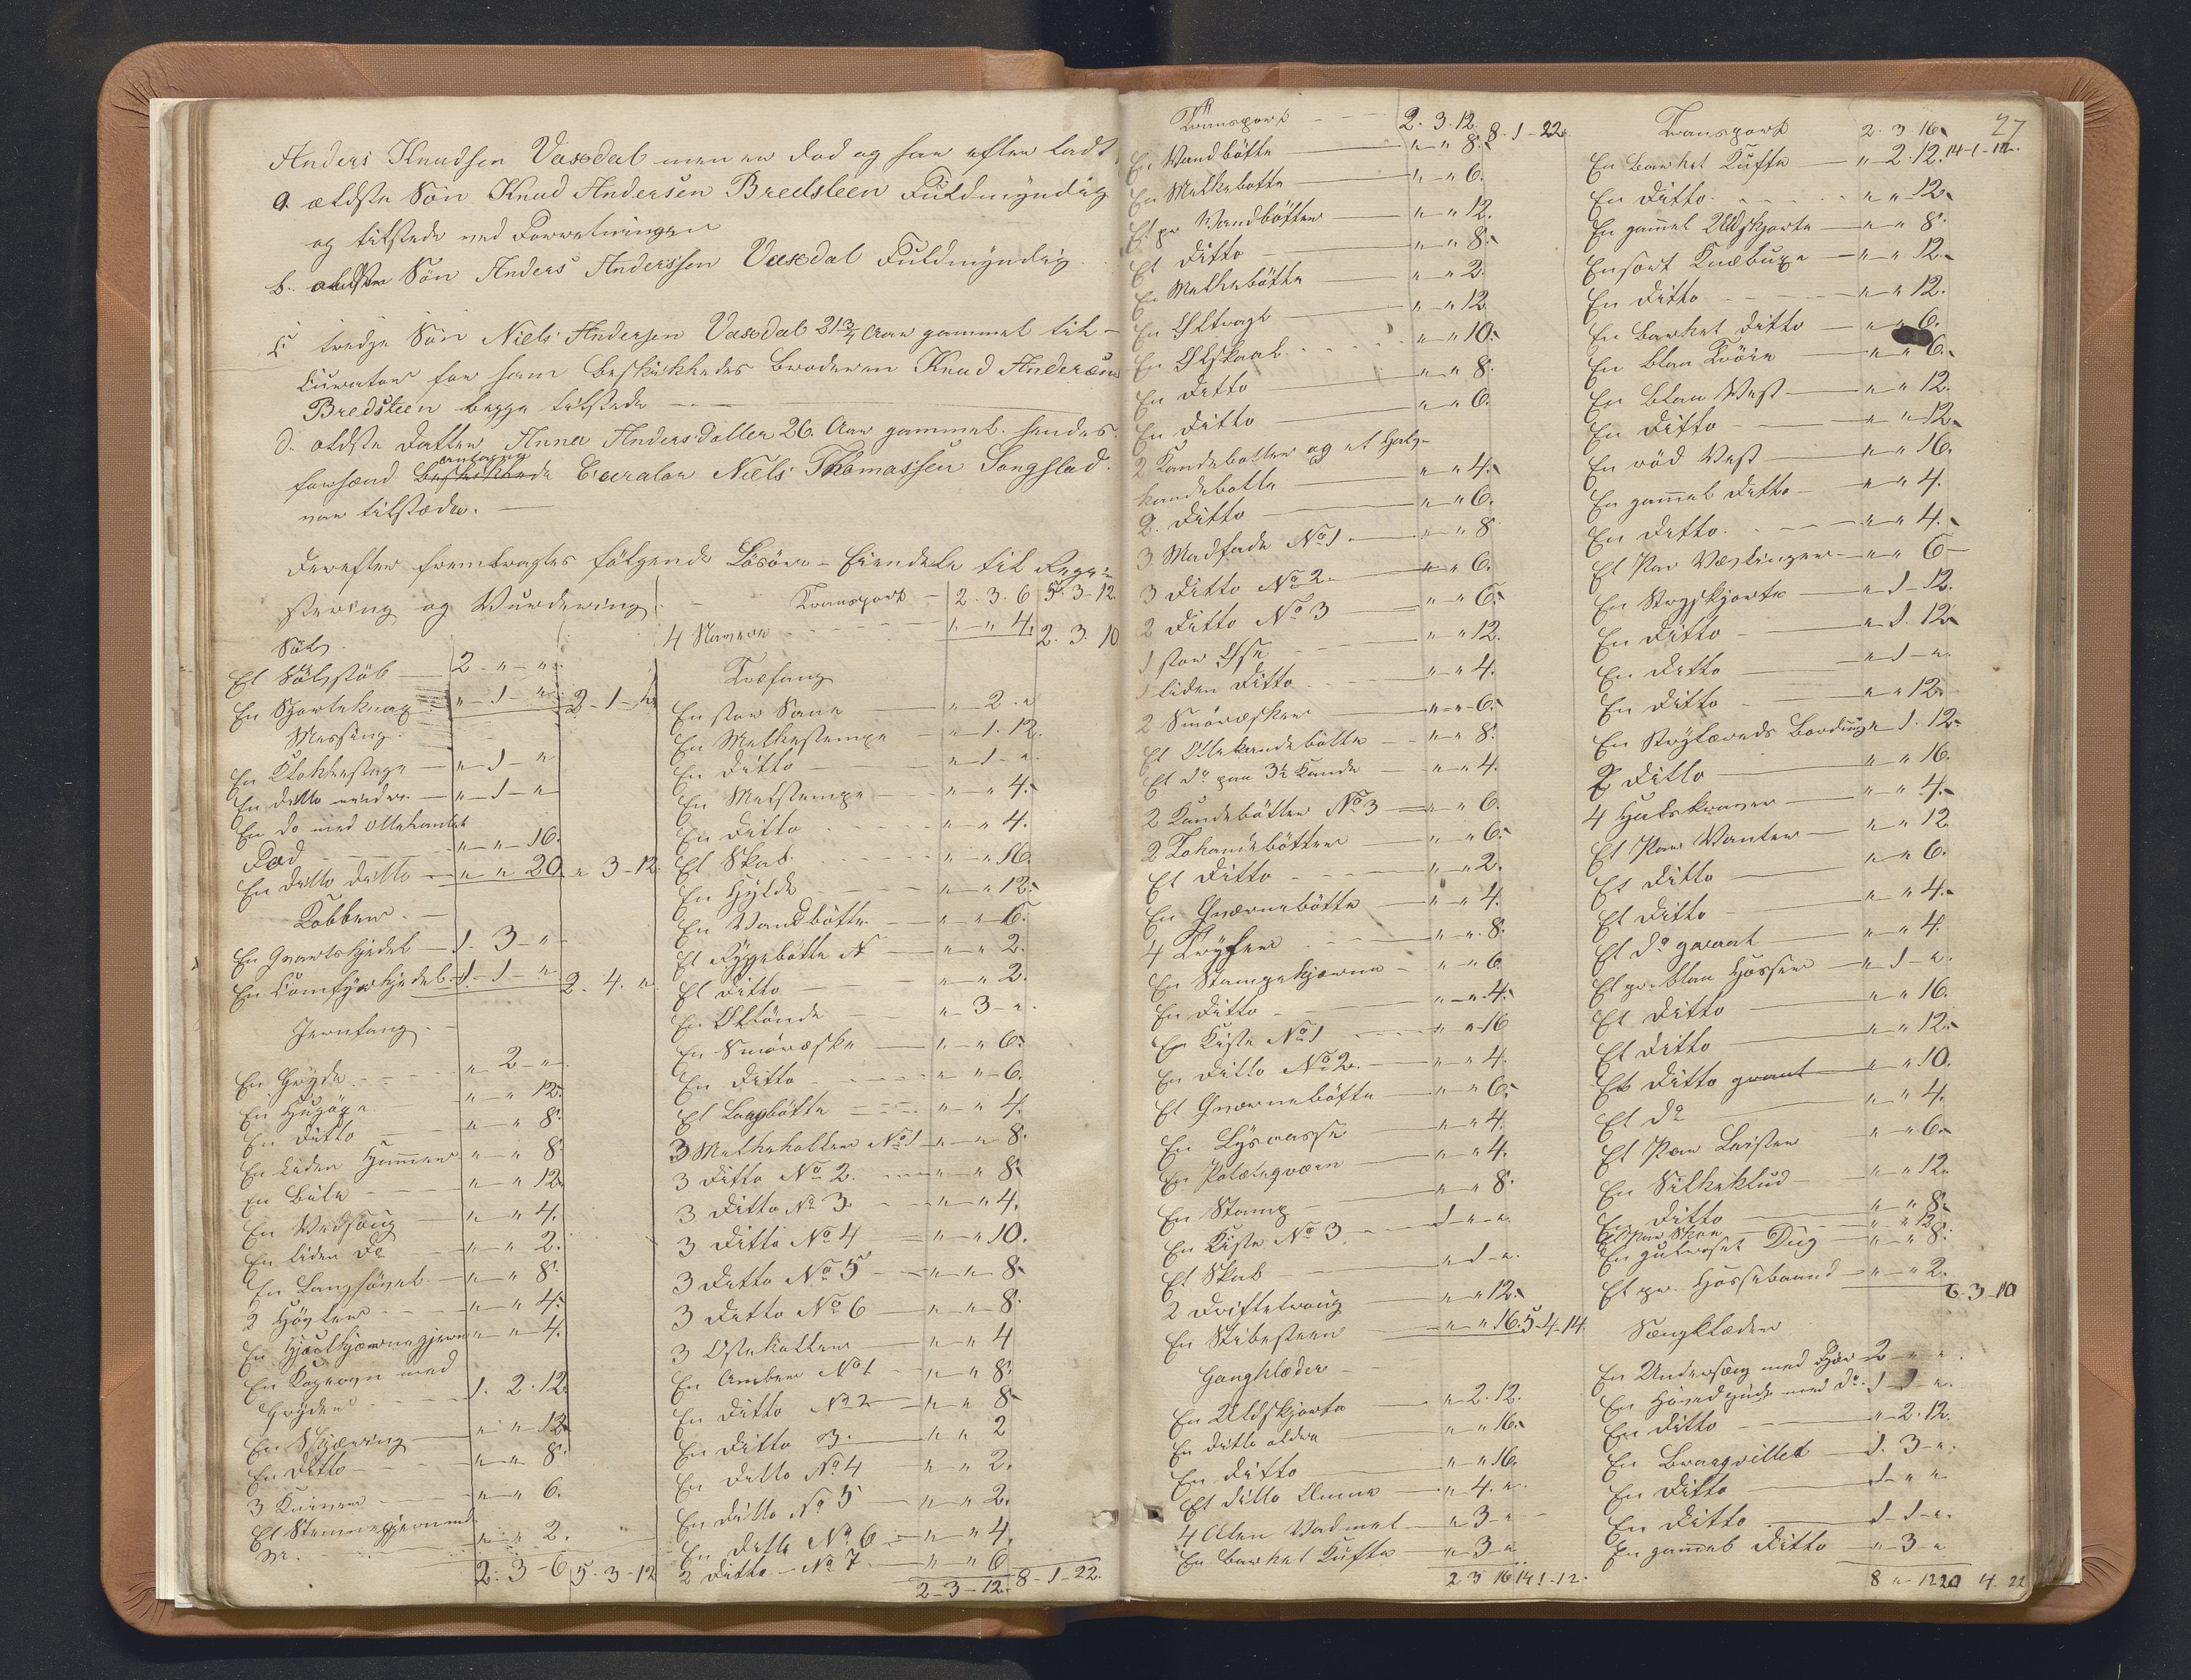 Anders Knudsen Vaxdal men er død og har efterladt
a ældste Søn Knud Andersen Bredsteen Fuldmyndig
og tilstede ved Forretningen
b. ældste Søn Anders Anderssen Vaxdal Fuldmyndig
c tredje Søn Niels Andersen Vaxdal 21 3/4 Aar gammel til-
Curator for ham beskikkedes Broderen Knud Andersen
Bredsteen begge tilstede
d. ældste Datter Anna Andersdatter 26 Aar gammel hendes
antagne
forhænd Beskikkede Curator Niels Thomassen Songstad
var tilstæde.
Derefter frembragtes følgende Løsøre-Eiendele til Regi-
stering og Vurdering
Sølv
Et Sølvstøb 2 - " - "
En Skjorteknap " - 1 - " 2 - 1 - "
Messing
En Klokkestage " - 1 - "
En ditto mindre " - 1 - "
En do med
Fod " - " - 16.
En ditto ditto " " 20 " 3 - 12
Kobber
En Qvartskjedel 1. 3 - "
En Comfyrkjedel 1 - 1 - " 2. 4. "
Jernfang
En Gryde " 2 - "
En Hugøxe " - " 12
En Ditto " - " 8.
En liden Hammer " - " 8
En Bile " - " 12
En Vedsaug " - " 4.
En liden Do " - " 2.
En Langhøvel " - " 8
2 Høvler " - " 4
En " - " 4.
En Kagerogn med
Gryder 1. 2. 12
En Skjæring " - " 12
En Ditto " - " 8.
3 Kniver " - " 6.
Et Stemmejern med
m. " - " 2.
2. 3 - 6 5. 3 - 12
Transport 2. 3. 6 5. 3 - 12
4 Navere " - " 4. 2. 3. 10
Træfang
En stor Saae " - 2. "
En Melkestampe " - 1. 12.
En Ditto " - 1 - "
En Melstampe " - " 4.
En Ditto " - " 4.
Et Skab " - " 16.
En Hylde " - " 12.
En Vandbøtte " - " 6.
Et Ryggebøtte " - " 2.
Et Ditto " - " 2.
En Øltønde " - 3 - "
En Smøræske " - " 6.
En Ditto " - " 6.
Et Laagbøtte " - " 4.
3 Melkekoller No 1 " - " 8.
3 Ditto No 2 " - " 8
3 Ditto No 3 " - " 4.
3 Ditto No 4 " - " 10.
3 Ditto No 5 " - " 8
3 Ditto No 6 " - " 8.
3 Ostekoller " - " 4
En Amber No 1 " - " 8.
En Ditto No 2 " - " 8
En Ditto 3. " - " 2
En Ditto No 4 " - " 2.
En Ditto No 5 " - " 2.
En Ditto No 6 " - " 4.
2 Ditto No 7 " - " 6
2 - 3 - 12. 8 - 1 - 22.
Transport 2. 3. 12 8. 1 - 22
En Vandbøtte " - " 8.
En Melkebøtte " - " 6.
Et pr Vandbøtter " - " 12.
Et Ditto " - " 8.
En Melkebøtte " - " 2
En Øltragt " - " 12
En Ølskaal " - " 10.
En Ditto " - " 8.
En Ditto " - " 6.
2 Kandebøtter og et Halv-
kandebøtte " - " 4.
2. Ditto " - " 6.
3 Madfade No 1 " - " 8
3 Ditto No 2 " - " 6.
2 Ditto No 3 " - " 6.
1 stor Øse " - " 12.
1 liden Ditto " - " 4.
2 Smøræsker " - " 6.
Et Ottekandebøtte " - " 8.
Et do paa 3 1/2 Kande " - " 4.
2 Kandebøtter No 3 " - " 6.
2 Tokandebøtter " - " 6.
Et Ditto " - " 2.
En Qværnebøtte " - " 4.
4 Trøser " - " 8.
En Stampekjærne " - " 6
En Ditto " - " 4.
En Kiste No 1 " - " 16
En Ditto No 2 " - " 4.
Et Qværnebøtte " - " 6.
En Lysecasse " - " 4.
En Potetesqværn " - " 4.
En Stamp " - " 8.
En Kiste No 3 1 - " - "
Et Skab " - 1 - "
2 Driftetroug " - " 12.
En Slibesteen " - " 16. 5 - 4 - 14
Gangklæder
En Uldskjorte " - 2. 12.
En Ditto ældre " - " 16.
En Ditto " - " 16.
Et Ditto " - 4. "
4 Alen Vadmel " - 3 - "
En barket Kufte " - 3 - "
2 3 16 14 1 - 12.
27
Transport 2. 3 16. 14 - 1 - 12.
En barket Kufte " 2. 12.
En Ditto " - " 12.
En gammel Uldskjorte " - " 8.
En sort Knæbuxe " - " 12.
En Ditto " - " 12.
En barket Ditto " - " 6.
En blaa Trøie " - " 6.
En blaa Vest " - " 12.
En Ditto " - " 12.
En rød Vest " - " 16.
En gammel Ditto " - " 4.
En Ditto " - " 4.
Et Par Væslinger " - " 6
En Strieskjorte " - 1 - 12.
En Ditto " - 1. 12
En Ditto " - 1 - "
En Ditto " - " 12
En Strielærreds Borddug " 1. 12
2 Ditto " - " 16.
4 Halskraver " - " 4.
Et Par Vanter " - " 12
Et Ditto " - " 6.
Et Ditto " - " 4.
Et do graat " - " 4.
Et pr blaa Hosser " - 1 - "
Et Ditto " - " 16.
Et Ditto " - " 12.
Et Ditto graat " - " 10.
Et do " - " 4.
Et Par Leister " - " 6.
En Silkeklud " - " 12.
En Ditto " - " 8.
Et Par Skoe " - " 12
En gulroset Dug " - " 8.
Et pr. Hossebaand " - " 2.
6. 3 - 10
Sengklæder
En Underseng med Fjær 2 - " - "
En Hovedpude med do 1 - 1 - "
En Ditto " - 2. 12.
En Brangvillet 1. 3 - "
En Ditto 1 - " - "
En Ditto 1 - 1 - "
En gammel Ditto " - 3 - "
8 " 12 20 4. 22